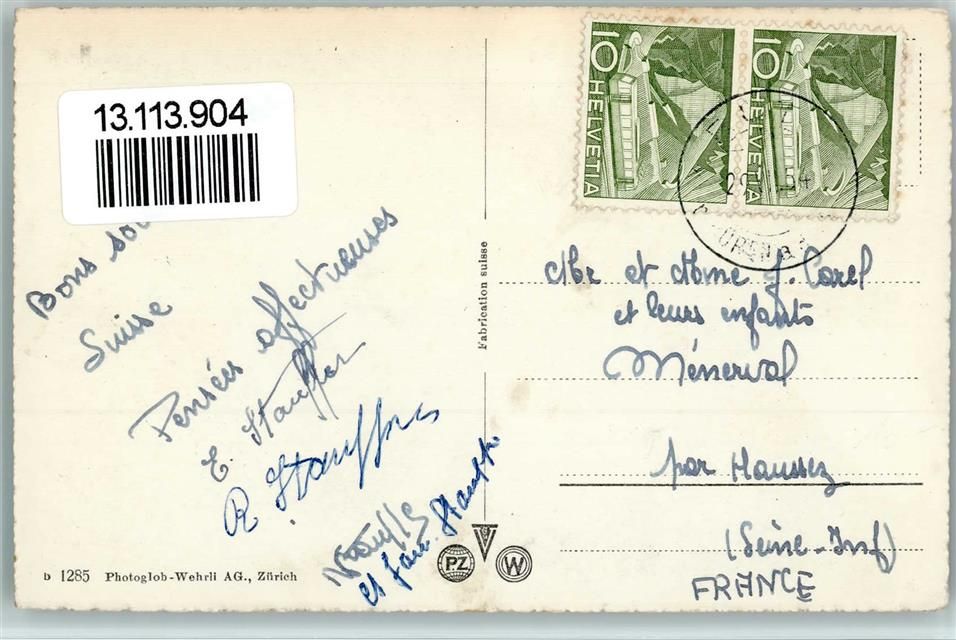 13.113.904
Bons sou
Suisse
Pensées affectueuses
E. Stauffer
R Stauffer
et fam. Stauffer
b 1285 Photoglob-Wehrli AG., Zürich
Fabrication suisse
PZ
W
10 HELVETIA
10 HELVETIA
Mr et Mme J. Carel
et leurs enfants
Ménerval
par Haussez
(Seine-Inf)
FRANCE